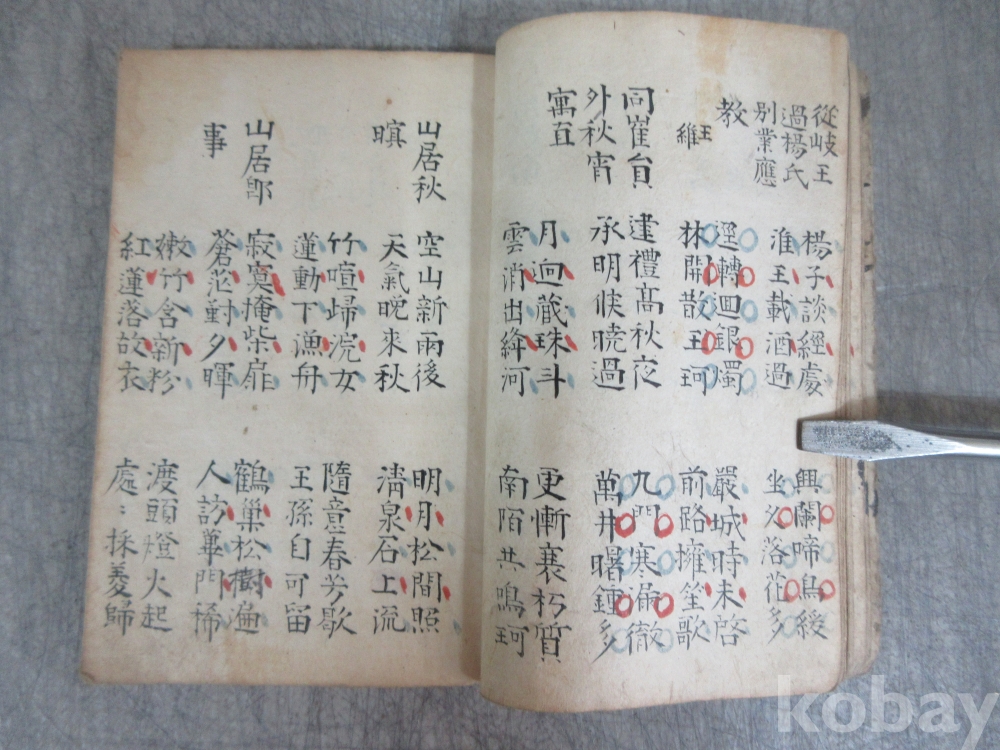 從岐王
過楊氏
別業應
教
王
維
楊子談經處
淮王載酒過
興闌啼鳥緩
坐久落花多
逕轉迴銀燭
林開散玉珂
嚴城時未啓
前路擁笙歌
同崔員
外秋宵
寓直
建禮高秋夜
承明候曉過
九門寒漏徹
萬井曙鍾多
月迥藏珠斗
雲消出絳河
更慚衰朽質
南陌共鳴珂
山居秋
暝
空山新雨後
天氣晚來秋
明月松間照
清泉石上流
竹喧歸浣女
蓮動下漁舟
隨意春芳歇
王孫自可留
山居即
事
寂寞掩柴扉
蒼茫對夕暉
鶴巢松樹遍
人訪蓽門稀
嫩竹含新粉
紅蓮落故衣
渡頭燈火起
處〻採菱歸
kobay